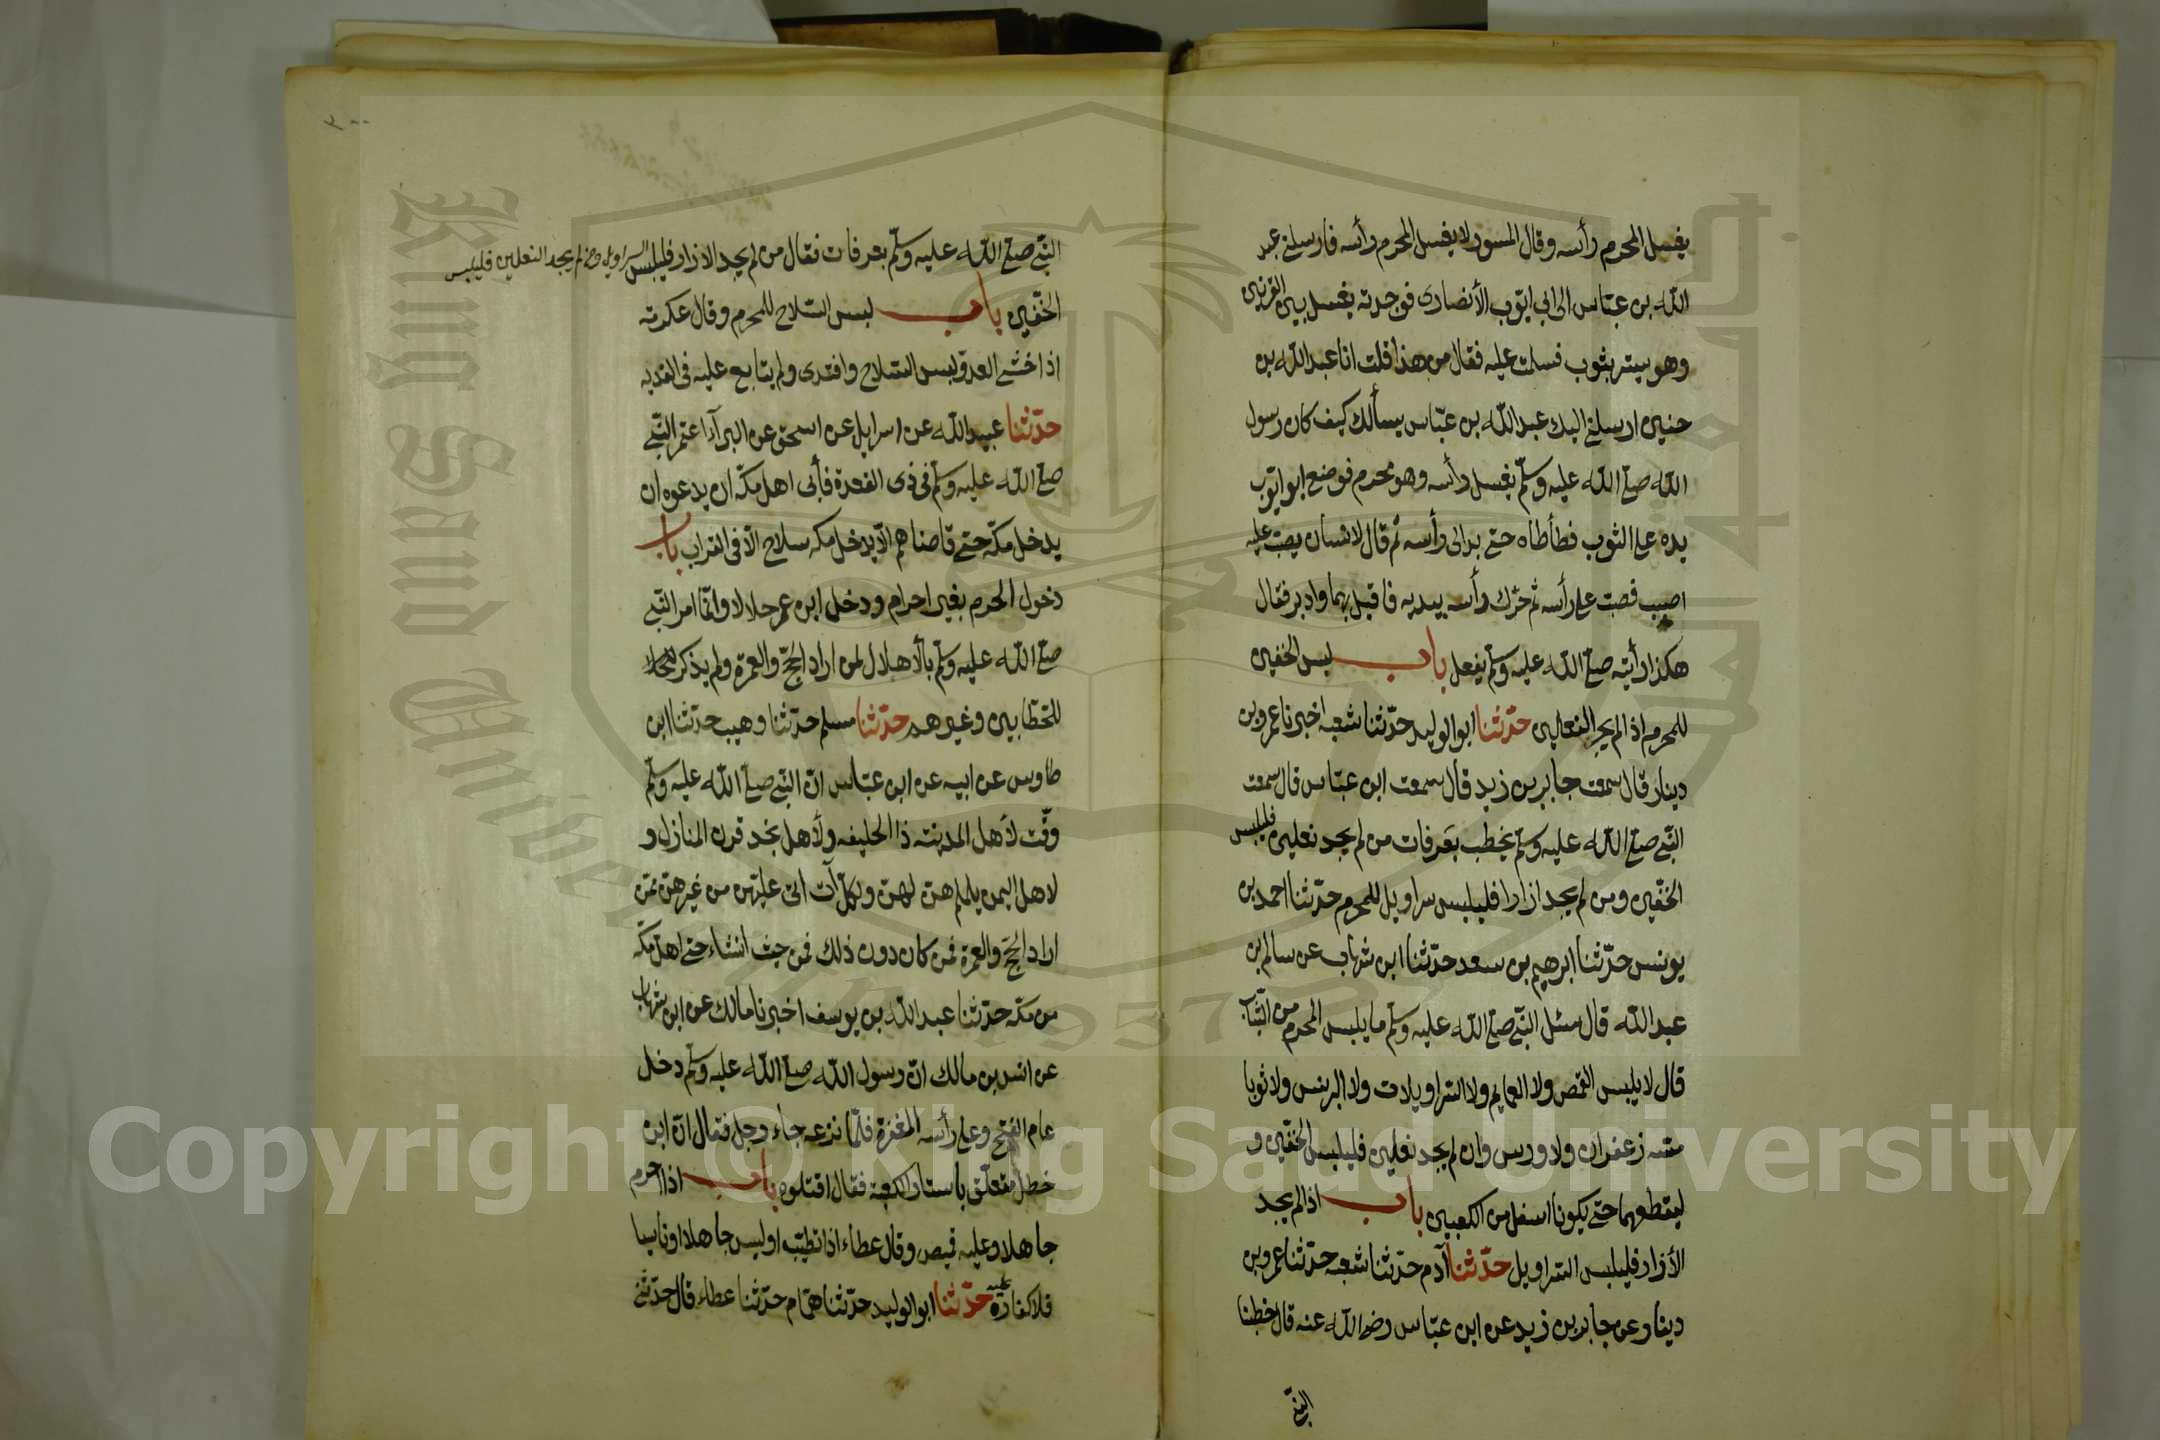 يغسل المحرم رأسه وقال المسور لا يغسل المحرم رأسه فارسلني عبد
الله بن عباس الى ابي ايّوب الأنصارى فوجدته يغسل بين القرنين
وهو يستر بثوب فسلمت عليه فقال من هذا قلت انا عبد الله بن
حنين ارسلني اليك عبد الله بن عبّاس يسألك كيف كان رسول
الله صلى الله عليه وسلّم يغسل رأسه وهو محرم فوضع ابو ايّوب
يده على الثوب فطأطاه حتى بدا لى رأسه ثم قال لانسان يصبّ عليه
اصبب فصبّ على رأسه ثم حرّك رأسه بيديه فاقبل بهما وادبر فقال
هكذا رأيته صلى الله عليه وسلّم يفعل باب لبس الخفين
للمحرم اذا لم يجد النعلين حدّثنا ابو الوليد حدّثنا شعبه اخبرنا عمرو بن
دينار قال سمعت جابر بن زيد قال سمعت ابن عبّاس قال سمعت
النبّى صلى الله عليه وسلّم يخطب بعَرفات من لم يجد نعلين فليلبس
الخفّين ومن لم يجد ازارا فليلبس سراويل للمحرم حدّثنا احمد بن
يونس حدّثنا ابرهيم بن سعد حدّثنا ابن شهاب عن سالم بن
عبد الله قال سئل النبّى صلى الله عليه وسلّم ما يلبس المحرم من الثيّاب
قال لا يلبس القمص ولا العمايم ولا السراويلات ولا البرنس ولا ثوبا
مسّه زعفران ولا ورس وان لم يجد نعلين فليلبس الخفّين و
ليقطعهما حتى يكونا اسفل من الكعبين باب اذا لم يجد
الأزار فليلبس السراويل حدّثنا آدم حدّثنا شعبه حدّثنا عمرو بن
دينار عن جابر بن زيد عن ابن عبّاس رضى الله عنه قال خطبنا
النبىّ
٣٠٠
النبّى صلى الله عليه وسلّم بعرفات فقال من لم يجد الازار فليلبس السراويل ومن لم يجد النعلين فليلبس
الخفّين باب لبس السّلاح للمحرم وقال عكرمة
اذا خشى العدوّ لبس السّلاح وافتدى ولم يتابع عليه فى الفديه
حدّثنا عبيد الله عن اسرايل عن اسحق عن البرآء اعتمر النبّى
صلى الله عليه وسلّم فى ذى القعدة فأبى اهل مكّه ان يدعوه ان
يدخل مكّة حتى قاضاهم الّا يدخل مكه سلاح الّا فى القراب باب
دخول الحرم بغير احرام ودخل ابن عمر حلالا وانّما امر النبّى
صلى الله عليه وسلّم بالأهلال لمن اراد الحجّ والعمرة ولم يذكر
للحطّابين وغيرهم حدّثنا مسلم حدّثنا وهيب حدّثنا ابن
طاوس عن ابيه عن ابن عبّاس انّ النبّى صلى الله عليه وسلّم
وقّت لأهل المدينة ذا الحليفه ولأهل نجد قرن المنازل و
لاهل اليمن يلملم هنّ لهنّ ولكلّ آت اتى عليهنّ من غيرهنّ ممّن
اراد الحجّ والعمرة فمن كان دون ذلك فمن حيث انشاء حتى اهل مكّه
من مكّه حدّثنا عبد الله بن يوسف اخبرنا مالك عن ابن شهاب
عن انس بن مالك انّ رسول الله صلى الله عليه وسلّم دخل
عام الفتح وعلى رأسه المغفرة فلمّا نزعه جاء رجل فقال انّ ابن
خطل متعلّق باستار الكعبة فقال اقتلوه باب اذا احرم
جاهلا وعليه قميص وقال عطاء اذا تطيّب او لبس جاهلا او ناسيا
فلا كفارة عليه حدّثنا ابو الوليد حدّثنا همّام حدّثنا عطاء قال حدّثنى
King Saud University
1957
Copyright © King Saud University